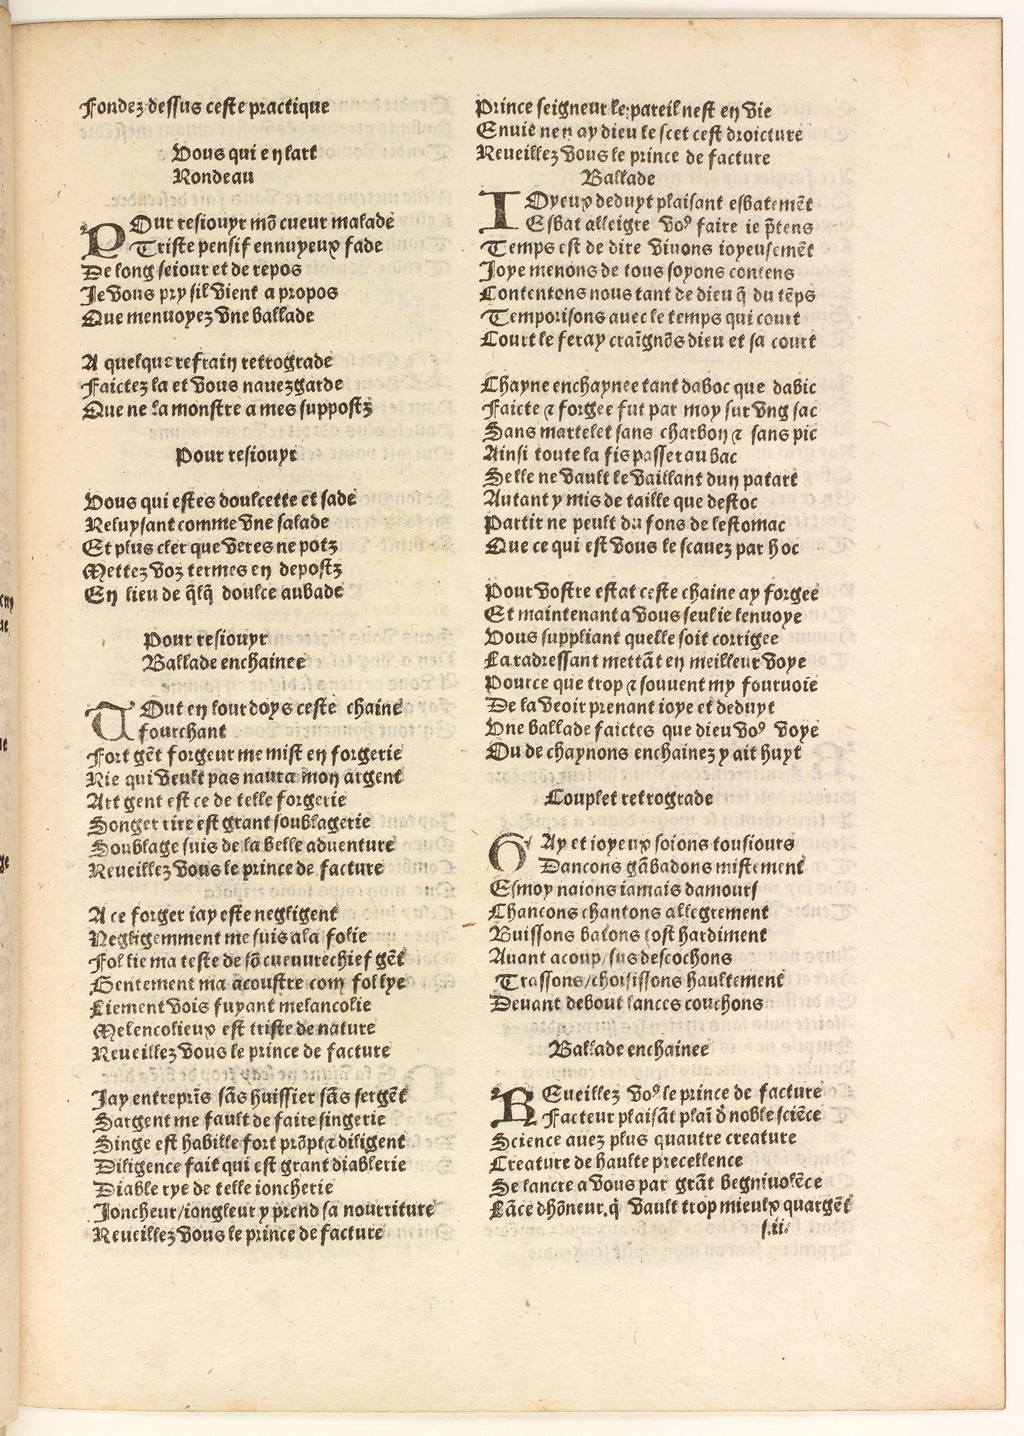 Fondez dessus ceste practique
Vous qui en lart
Rondeau
POur resiouyr mõ cueur malade
Triste pensif ennuyeux fade
De long seiour et de repos
Je vous pry sil vient a propos
Que menuoyez vne ballade
A quelque refrain retrograde
Faictez la et vous nauez garde
Que ne la monstre a mes suppostz
Pour resiouyr
Vous qui estes doulcette et sade
Reluysant comme vne salade
Et plus cler que veres ne potz
Mettez voz termes en depostz
En lieu de q̃lq̃ doulce aubade
Pour resiouyr
Ballade enchainee
TOut en lourdoys ceste chaine
fourchant
Fort gẽt forgeur me mist en forgerie
Rie qui veult pas naura mon argent
Art gent est ce de telle forgerie
Songer rire est grant soublagerie
Soublage suis de la belle aduenture
Reueillez vous le prince de facture
A ce forger iay este negligent
Negligemment me suis a la folie
Follie ma teste de sõ cueuurechief gẽt
Gentement ma acoustre com follye
Liement vois fuyant melancolie
Melencolieux est triste de nature
Reueillez vous le prince de facture
Jay entrepris sãs huissier sãs sergẽt
Sargent me fault de faire singerie
Singe est habille fort prõpt ⁊ diligent
Diligence fait qui est grant diablerie
Diable rye de telle ioncherie
Joncheur/iongleur y prend sa nourriture
Reueillez vous le prince de facture
Prince seigneur le pareil nest en vie
Enuie nen ay dieu le scet cest droicture
Reueillez vous le prince de facture
Ballade
IOyeux deduyt plaisant esbatemẽt
Esbat alleigre voꝰ faire ie p̃tens
Temps est de dire viuons ioyeusemẽt
Joye menons de tous soyons contens
Contentons nous tant de dieu q̃ du tẽps
Temporisons auec le temps qui court
Court le feray craignõs dieu et sa court
Chayne enchaynee tant daboc que dabic
Faicte ⁊ forgee fut par moy sur vng sac
Sans martelet sans charbon ⁊ sans pic
Ainsi toute la fis passer au bac
Selle ne vault le vaillant dun patart
Autant y mis de taille que destoc
Partir ne peult du fons de lestomac
Que ce qui est vous le scauez par hoc
Pour vostre estat ceste chaine ay forgee
Et maintenant a vous seul ie lenuoye
Vous suppliant quelle soit corrigee
La radressant mettãt en meilleur voye
Pource que trop ⁊ souuent my fouruoie
De la veoir prenant ioye et deduyt
Vne ballade faictes que dieu voꝰ voye
Ou de chaynons enchainez y ait huyt
Couplet retrograde
GAy et ioyeux soions tousiours
Dancons gãbadons mistement
Esmoy naions iamais damours
Chancons chantons allegrement
Buissons batons tost hardiment
Auant acoup/sus descochons
Trassons/choisissons haultement
Deuant debout lances couchons
Ballade enchainee
REueillez voꝰ le prince de facture
Facteur plaisãt plai d̃ noble sciẽce
Science auez plus quautre creature
Creature de haulte precellence
Se lancre a vous par grãt begniuolẽce
Lãce dhõneur q̃ vault trop mieulx quargẽt
s.ii.